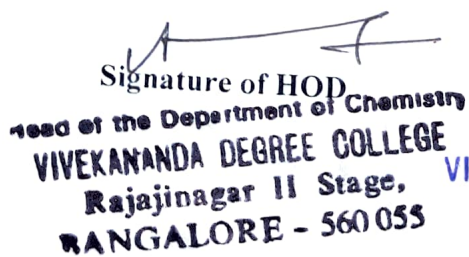 Signature of HOD
Head of the Department of Chemistry
VIVEKANANDA DEGREE COLLEGE
VI
Rajajinagar II Stage,
BANGALORE - 560 055